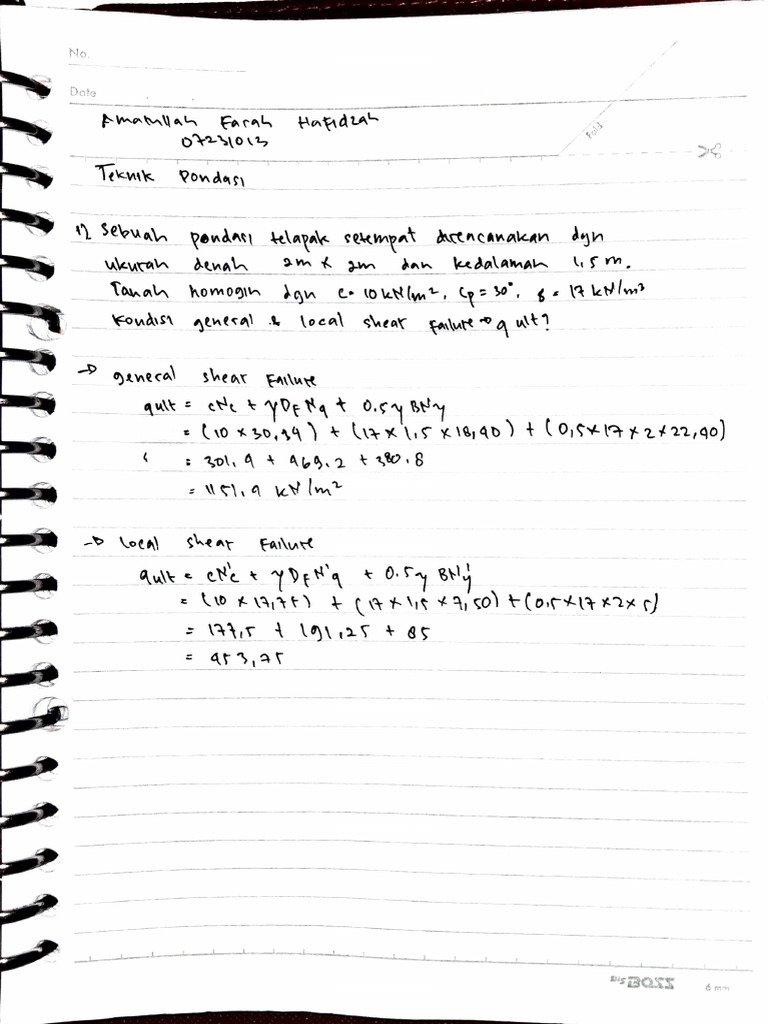 No.
Date
Amatullah Farah Hafidzah
07231013
Fold
Teknik Pondasi
1) Sebuah pondasi telapak setempat direncanakan dgn
ukuran denah 2m x 2m dan kedalaman 1,5 m.
Tanah homogin dgn c = 10 kN/m², φ = 30°, γ = 17 kN/m³
Kondisi general & local shear failure → q ult?
→ general shear failure
qult = cNc + γDfNq + 0.5γBNγ
= (10 × 30,14) + (17 × 1,5 × 18,40) + (0,5×17×2×22,40)
= 301,4 + 469.2 + 380.8
= 1151,4 kN/m²
→ local shear failure
qult = cN'c + γDfN'q + 0.5γBN'γ
= (10 × 17,75) + (17×1,5×7,50) + (0,5×17×2×5)
= 177,5 + 191,25 + 85
= 453,75
Big BOSS 6 mm